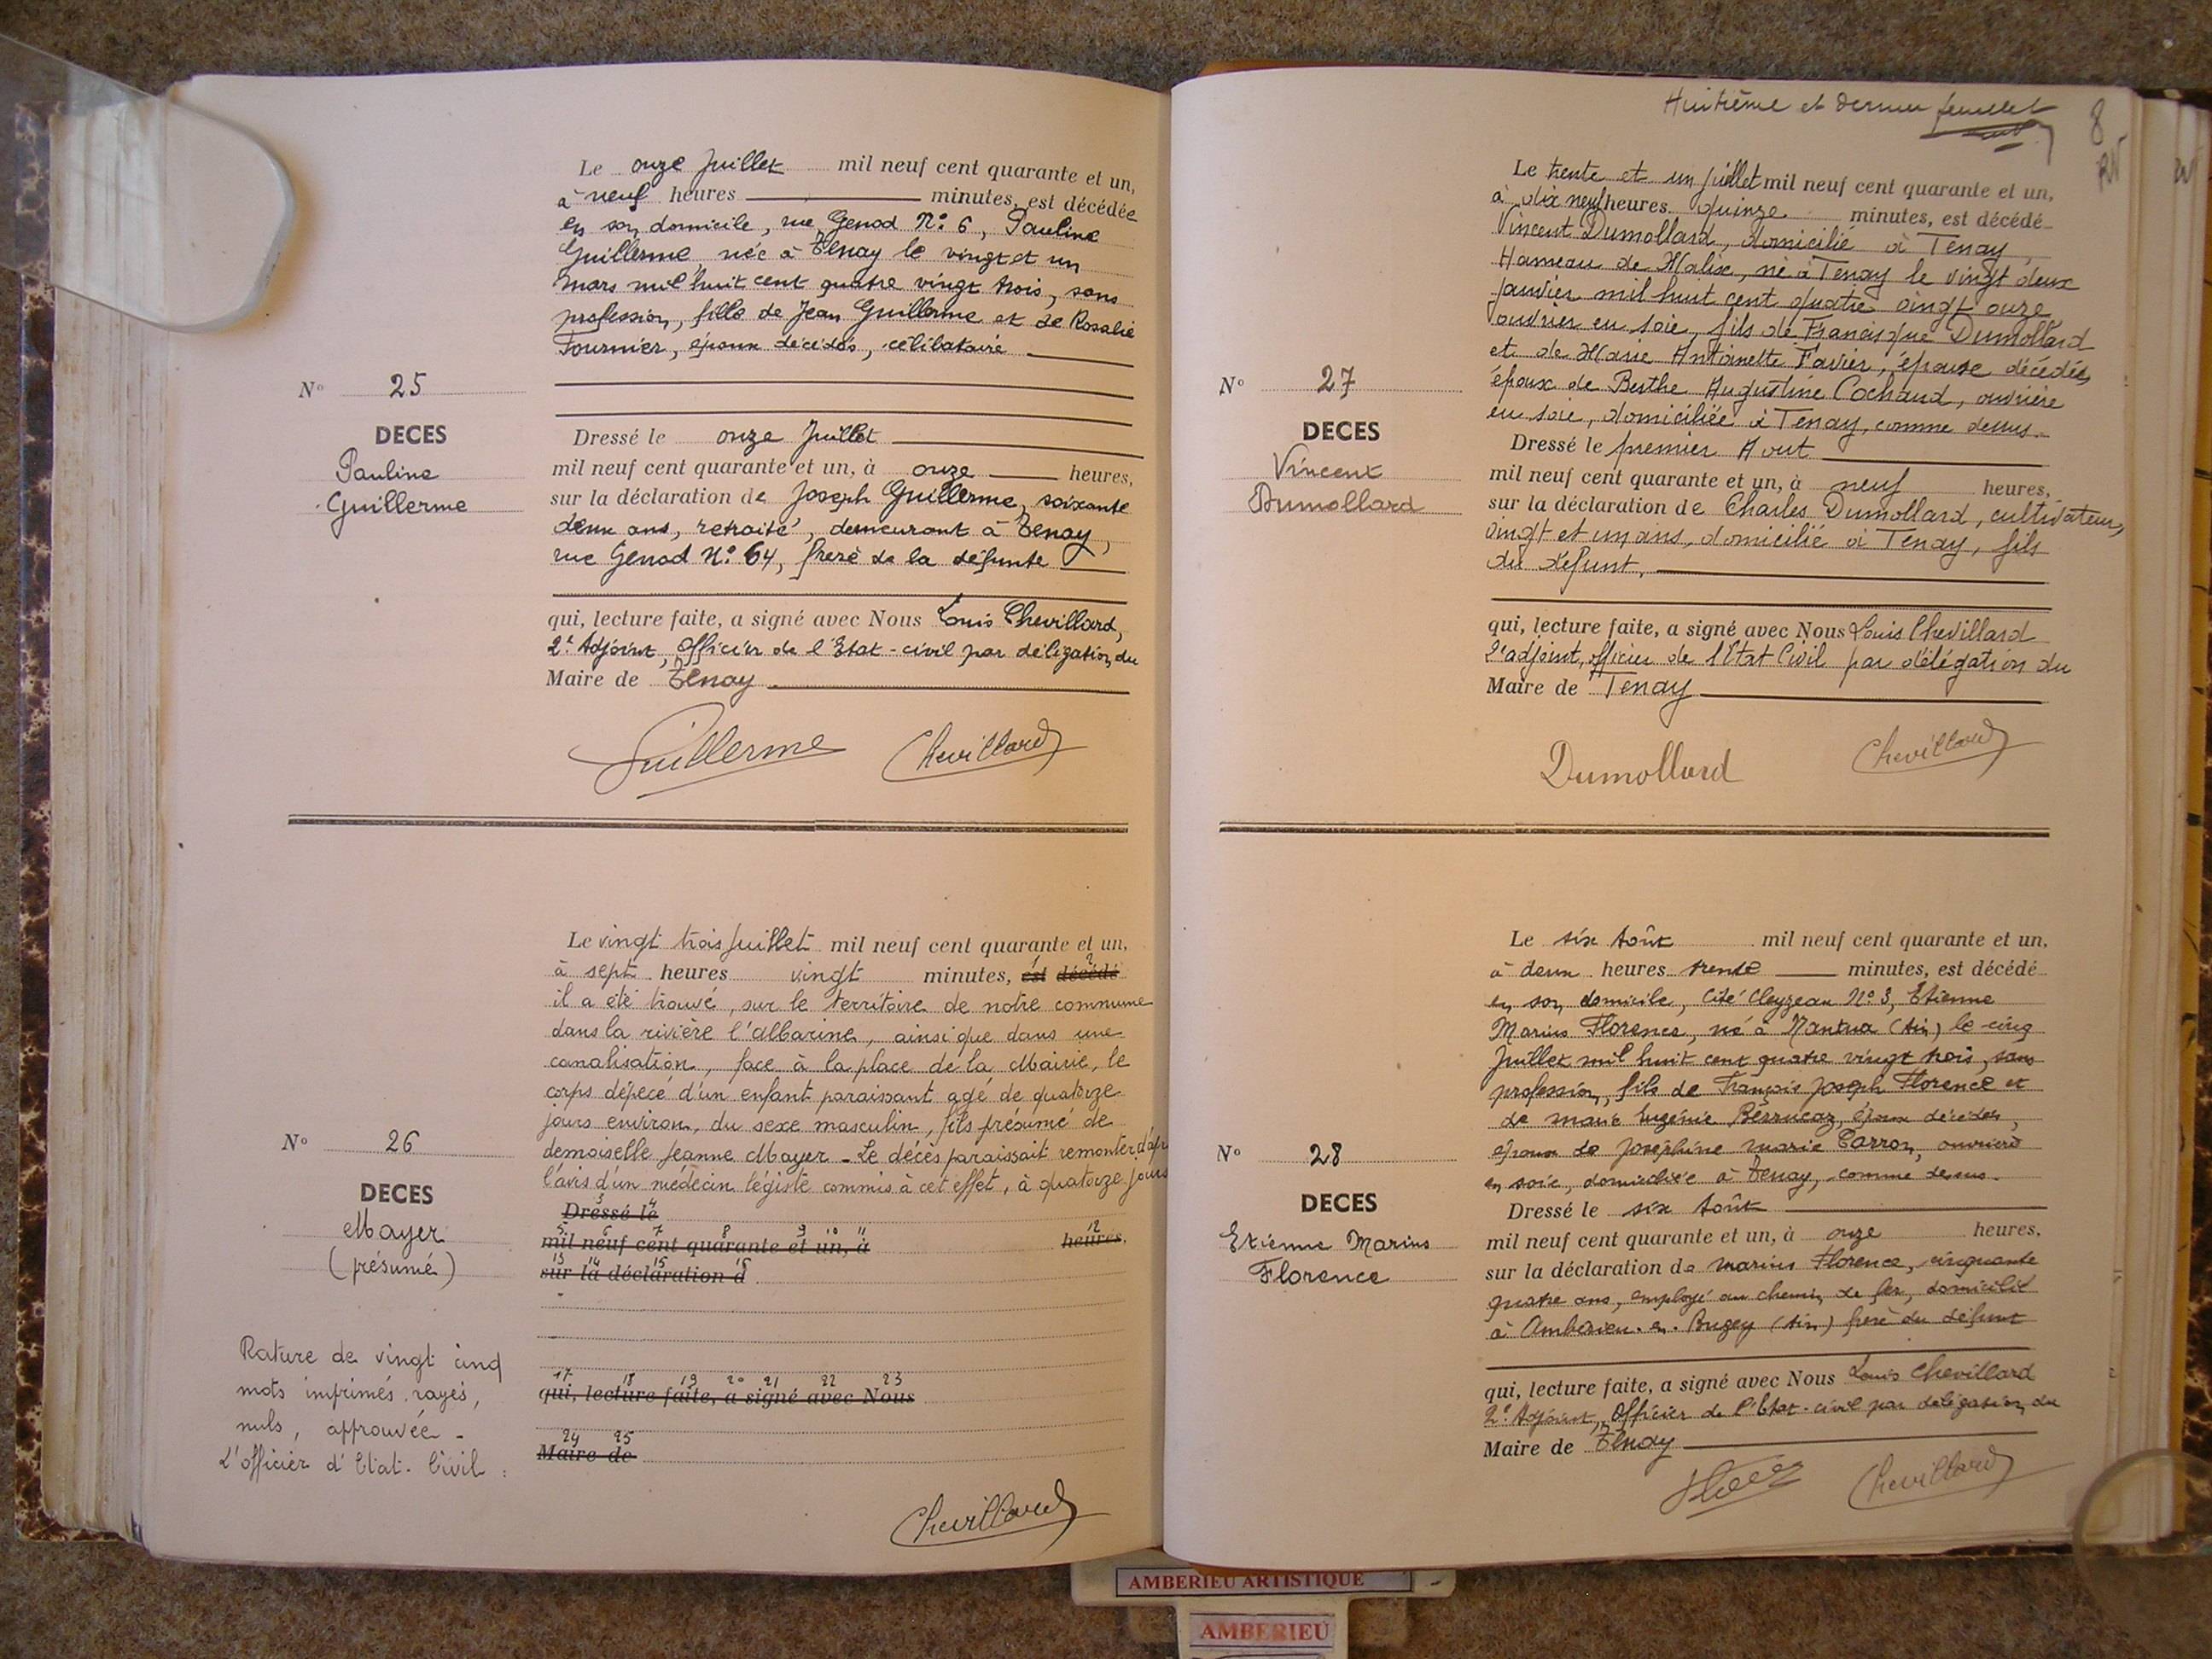 Le onze Juillet mil neuf cent quarante et un,
à neuf heures minutes, est décédée
en son domicile, rue Genod N° 6, Pauline
Guillerme, née à Tenay le vingt et un
mars mil huit cent quatre vingt trois, sans
profession, fille de Jean Guillerme et de Rosalie
Fournier, époux décédés, célibataire
N° 25
DECES
Pauline
Guillerme
Dressé le onze Juillet
mil neuf cent quarante et un, à onze heures,
sur la déclaration de Joseph Guillerme, soixante
deux ans, retraité, demeurant à Tenay,
rue Genod N° 64, frère de la défunte
qui, lecture faite, a signé avec Nous Louis Chevillard,
2e Adjoint, Officier de l'Etat-civil par délégation du
Maire de Tenay
Guillerme Chevillard
Le vingt trois Juillet mil neuf cent quarante et un,
à sept heures vingt minutes, est décédé
il a été trouvé, sur le territoire de notre commune
dans la rivière l'albarine, ainsi que dans une
canalisation, face à la place de la Mairie, le
corps dépecé d'un enfant paraissant agé de quatorze
jours environ, du sexe masculin, fils présumé de
demoiselle Jeanne Mayer - Le décès paraissait remonter d'après
l'avis d'un médecin légiste commis à cet effet, à quatorze jours
N° 26
DECES
Mayer
(présumé)
Dressé le
mil neuf cent quarante et un, à heures,
sur la déclaration d
qui, lecture faite, a signé avec Nous
Maire de
Rature de vingt cinq
mots imprimés rayés,
nuls, approuvée -
L'officier d'Etat-Civil :
Chevillard
Huitième et dernier feuillet
8
Le trente et un juillet mil neuf cent quarante et un,
à dix neuf heures quinze minutes, est décédé
Vincent Dumollard, domicilié à Tenay
Hameau de Malix, né à Tenay le vingt deux
janvier mil huit cent quatre vingt onze
ouvrier en soie, fils de Francisque Dumollard
et de Marie Antoinette Favier, épouse décédés
époux de Berthe Augustine Cochaud, ouvrière
en soie, domiciliée à Tenay, comme dessus.
N° 27
DECES
Vincent
Dumollard
Dressé le premier Aout
mil neuf cent quarante et un, à neuf heures,
sur la déclaration de Charles Dumollard, cultivateur,
vingt et un ans, domicilié à Tenay, fils
du défunt,
qui, lecture faite, a signé avec Nous Louis Chevillard
2e adjoint, officier de l'Etat Civil par délégation du
Maire de Tenay
Dumollard Chevillard
Le six Août mil neuf cent quarante et un,
à deux heures trente minutes, est décédé
en son domicile, Cité Cleyzeau N° 3, Etienne
Marius Florence, né à Nantua (Ain) le cinq
Juillet mil huit cent quatre vingt trois, sans
profession, fils de François Joseph Florence et
de Marie Eugénie époux décédés,
époux de Joséphine Marie Carron, ouvrière
en soie, domiciliée à Tenay, comme dessus.
N° 28
DECES
Etienne Marius
Florence
Dressé le six Août
mil neuf cent quarante et un, à onze heures,
sur la déclaration de Marius Florence, cinquante
quatre ans, employé au chemin de fer, domicilié
à Ambérieu-en-Bugey (Ain) frère du défunt
qui, lecture faite, a signé avec Nous Louis Chevillard
2e Adjoint, Officier de l'Etat-civil par délégation du
Maire de Tenay
Chevillard
AMBERIEU ARTISTIQUE
AMBERIEU